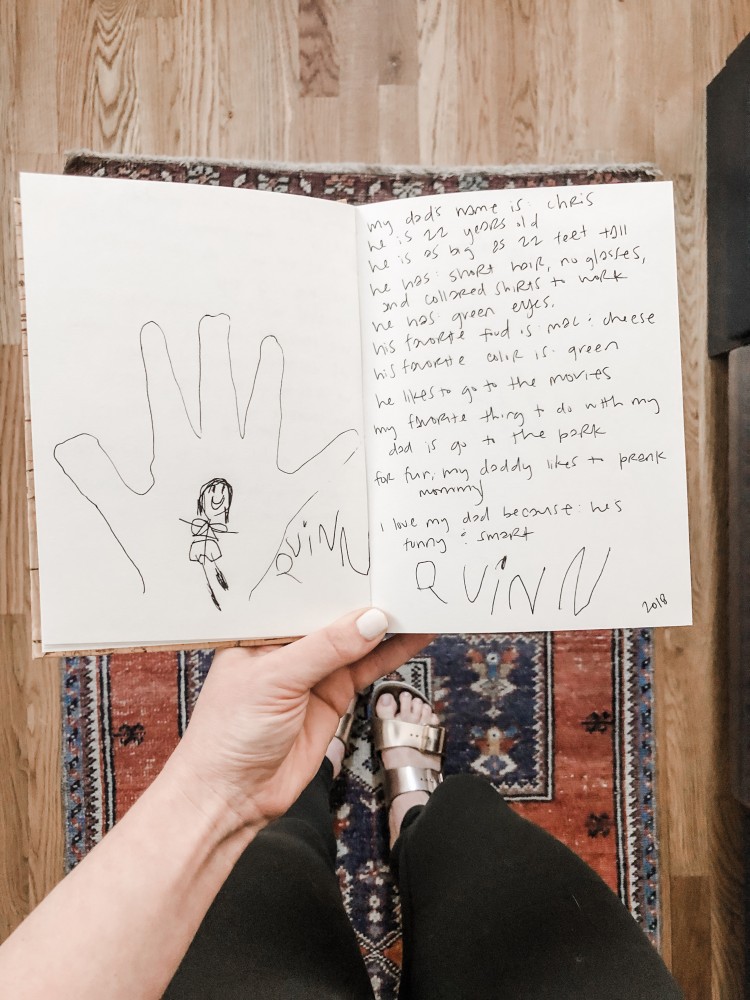 QUINN
my dad's name is: chris
he is 22 years old
he is as big as 22 feet tall
he has: short hair, no glasses,
and collared shirts to work
he has green eyes.
his favorite food is: mac : cheese
his favorite color is: green
he likes to go to the movies
my favorite thing to do with my
dad is go to the park
for fun, my daddy likes to prank
mommy
i love my dad because: hes
funny : smart
QUINN
2018